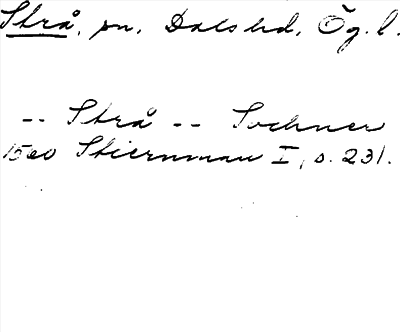 Strå, sn, Dals hd, Ög. l.
-- Strå -- Sochner
1500 Stiernman I, s. 231.